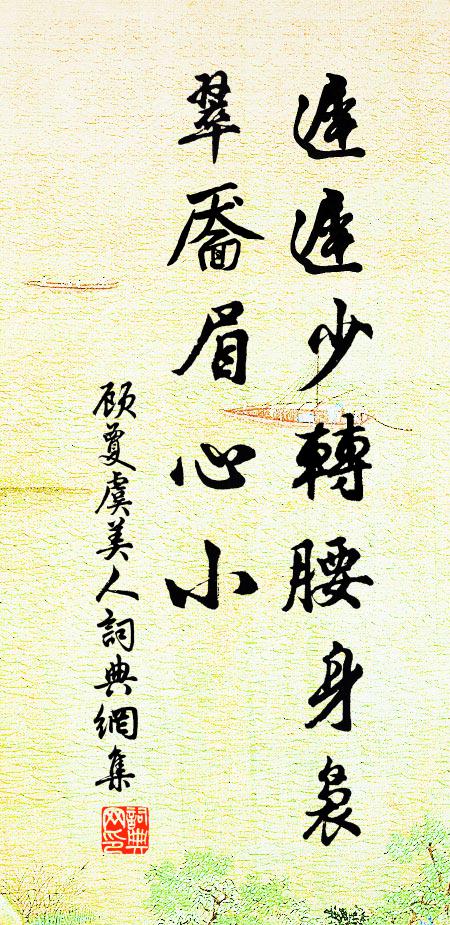 遲遲少轉腰身裊
翠靨眉心小
顾夐虞美人詞典網集
詞典网印